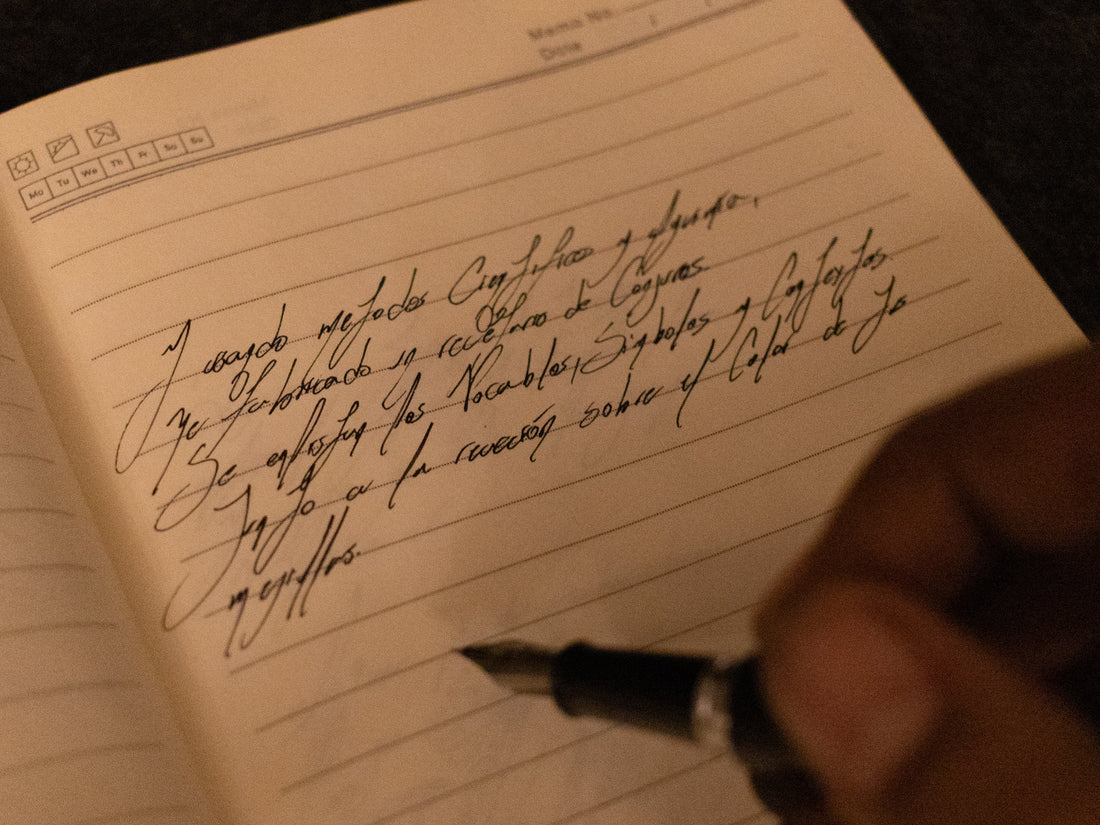 Memo No.
Date / /
Mo Tu We Th Fr Sa Su
Y usando metodos Cientifico y Alquimia,
He fabricado un recetario de Conjuros.
Se enlistan los Vocablos, Simbolos y Contextos
Junto a la reacción sobre el Color de
mejillas.